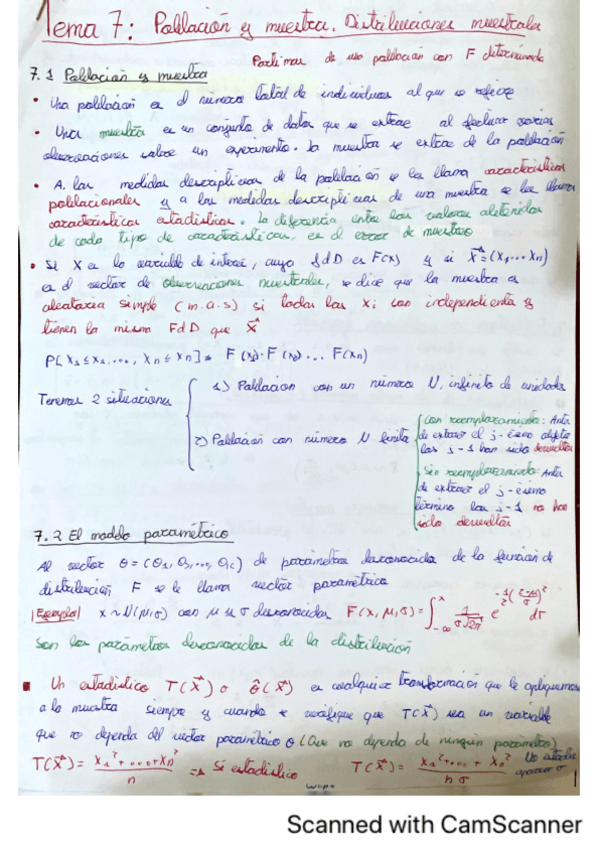 Tema 7: Población y muestra. Distribuciones muestrales
Partimos de una población con F determinada
7.1 Población y muestra
• Una población es el número total de individuos al que se refiere
• Una muestra es un conjunto de datos que se extrae al efectuar varias
observaciones sobre un experimento. La muestra se extrae de la población
• A las medidas descriptivas de la población se les llama características
poblacionales y a las medidas descriptivas de una muestra se les llama
características estadísticas. La diferencia entre los valores obtenidos
de cada tipo de características, es el error de muestreo
• Si X es la variable de interés, cuya FdD es F(x) y si X⃗=(X₁,...Xₙ)
es el vector de observaciones muestrales, se dice que la muestra es
aleatoria simple (m.a.s) si todas las Xi son independientes y
tienen la misma FdD que X⃗
P[X₁≤x₁,..., Xₙ≤xₙ]= F(x₁)·F(x₂)... F(xₙ)
Tenemos 2 situaciones
1) Población con un número N, infinito de unidades
2) Población con número N finito
Con reemplazamiento: Antes
de extraer el j-ésimo objeto
los j-1 han sido devueltos
Sin reemplazamiento: Antes
de extraer el j-ésimo
término los j-1 no han
sido devueltos
7.2 El modelo paramétrico
Al vector θ=(θ₁,θ₂,...,θₖ) de parámetros desconocidos de la función de
distribución F se le llama vector paramétrico
Ejemplo x~N(μ,σ) con μ y σ desconocidos F(x,μ,σ)=∫₋∞ˣ 1/(σ√2π) e^(-1/2((z-μ)/σ)²) dσ
Son los parámetros desconocidos de la distribución
▪ Un estadístico T(X⃗) o θ̂(X⃗) es cualquier transformación que le apliquemos
a la muestra siempre y cuando se verifique que T(X⃗) sea una variable
que no dependa del vector paramétrico θ (Que no dependa de ningún parámetro)
T(X⃗)= (X₁²+...+Xₙ²)/n => Sí estadístico T(X⃗)= (X₁²+...+Xₙ²)/(nσ) No estadís
aparece σ
wuolah
Scanned with CamScanner